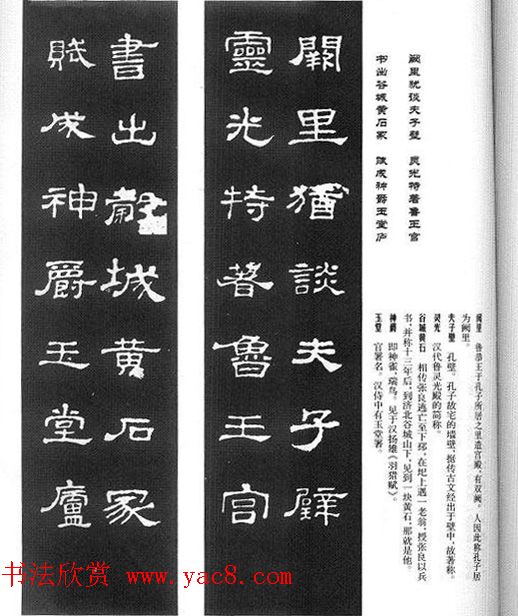 阙里犹谈夫子壁 灵光特着鲁王宫
书出谷城黄石冢 赋成神爵玉堂庐
阙里 鲁恭王于孔子所居之里造宫殿,有双阙。人因此称孔子居
为阙里。
夫子壁 孔壁。孔子故宅的墙壁,据传古文经出于壁中,故著称。
灵光 汉代鲁灵光殿的简称。
谷城黄石 相传张良逃亡至下邳,在圯上遇一老翁,授张良以兵
书,并称十三年后,到济北谷城山下,见到一块黄石,那就是他。
神爵 即神雀,瑞鸟。见于汉扬雄《羽猎赋》。
玉堂 官署名。汉侍中有玉堂署。
闕里猶談夫子壁
靈光特著魯王宮
書出穀城黃石冢
賦成神爵玉堂廬
书法欣赏 www.yac8.com